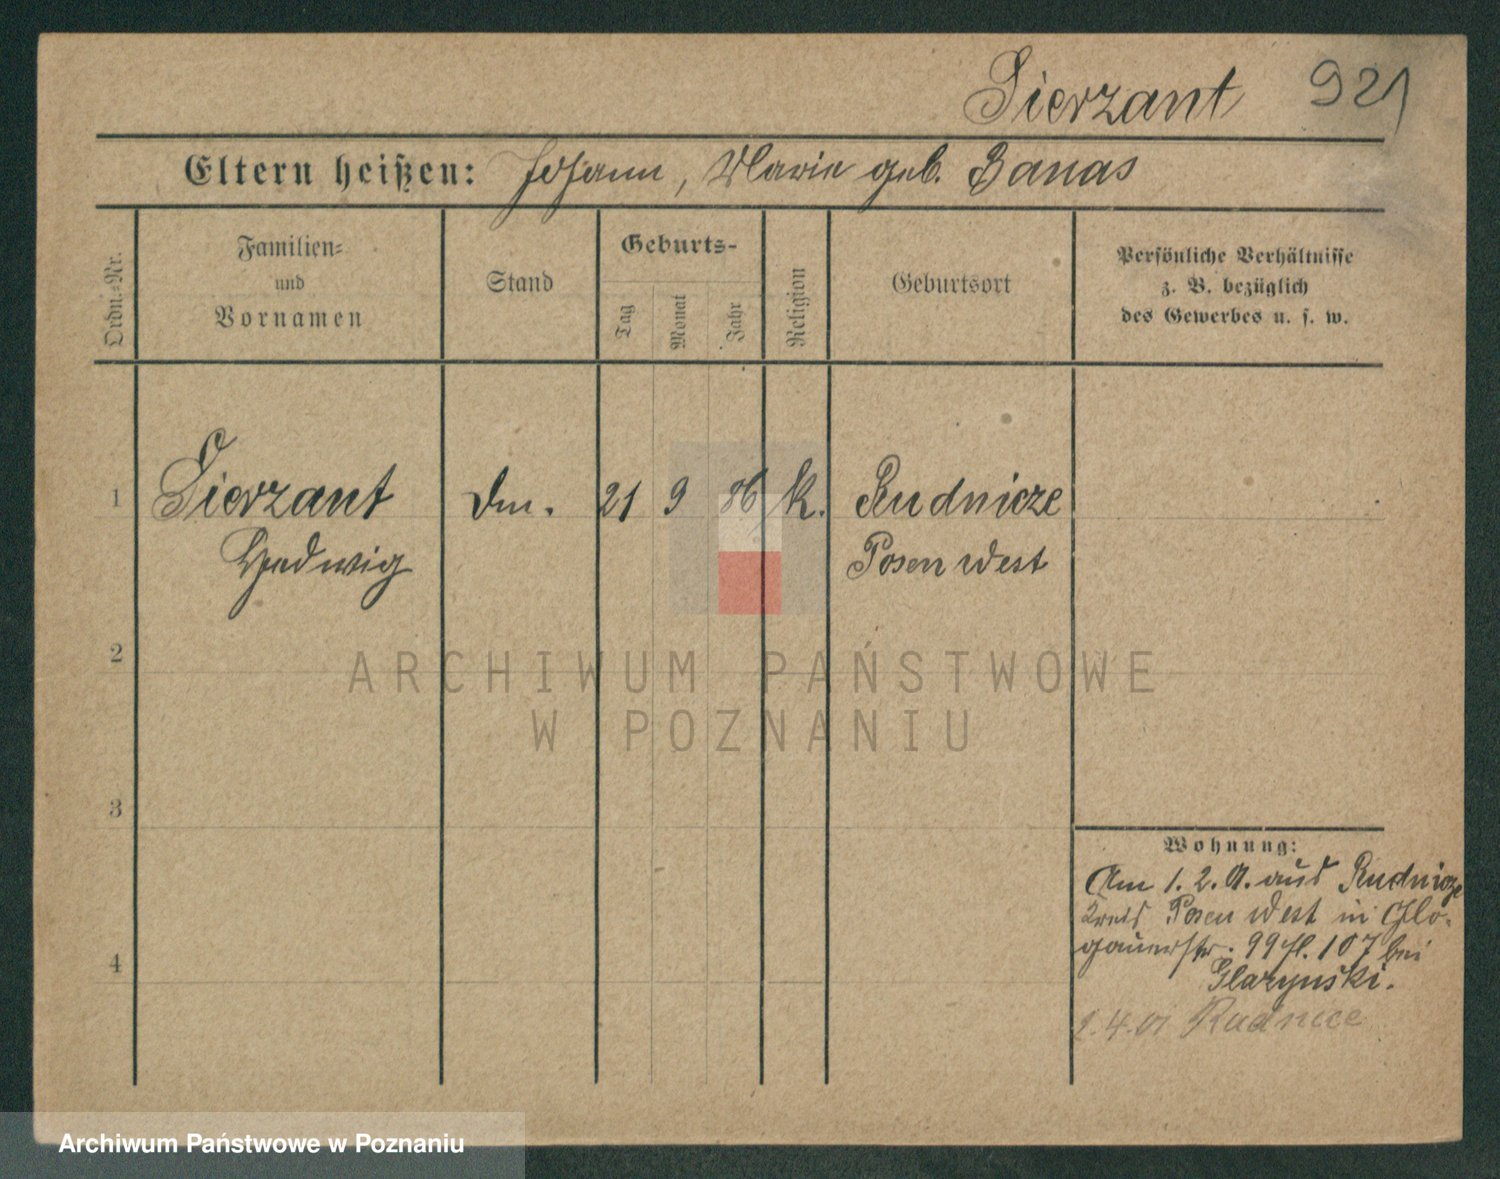 Sierzant 921
Eltern heißen: Johann, Marie geb. Banas
Ordn.-Nr.
Familien-
und
Vornamen
Stand
Geburts-
Tag
Monat
Jahr
Religion
Geburtsort
Persönliche Verhältnisse
z. B. bezüglich
des Gewerbes u. s. w.
1 Sierzant Dm. 21 9 86 k. Rudnicze
Hedwig Posen West
2
3
4
Wohnung:
Am 1. 2. 01. aus Rudnicze
Kreis Posen West in Glo-
gauerstr. 99 fl. 107 bei
Glazynski.
2.4.01 Rudnice
ARCHIWUM PAŃSTWOWE
W POZNANIU
Archiwum Państwowe w Poznaniu